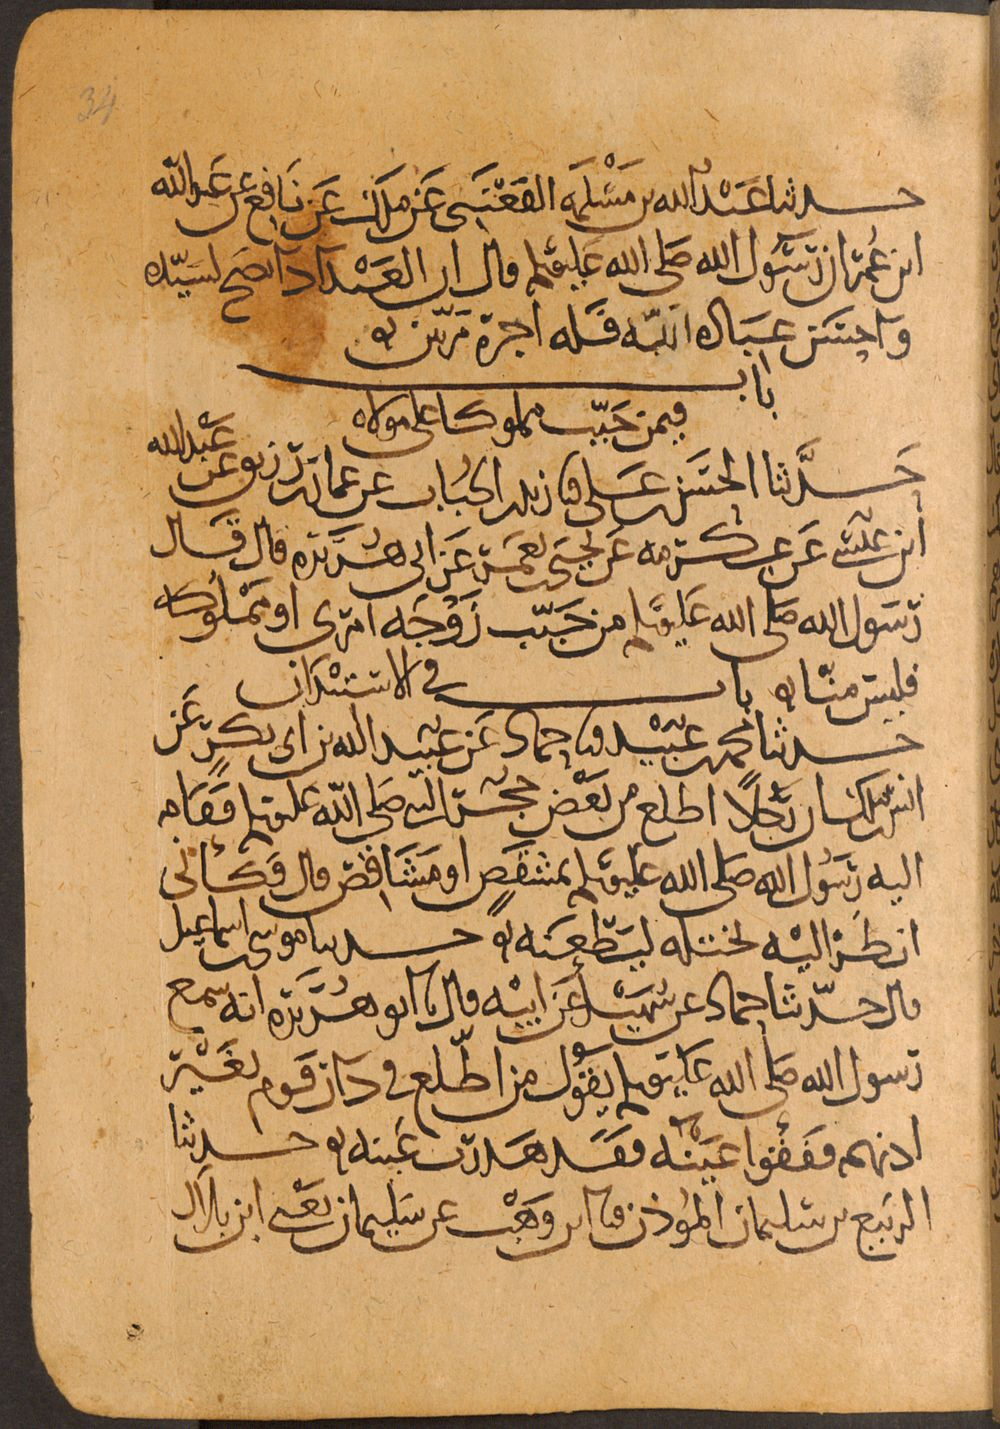 34
حدثنا عَبْدُ الله بن مَسْلَمة القَعْنَبى عَن ملك عَن نَافِع عن عَبد الله
ابن عُمَر ان رَسُول الله صَلى الله عَليه وسلم قال ان العَبْد اذا نصح لسَيّده
واحسَن عبَادة الله فَله اجره مَرّتين
باب
فيمن خَبّب مملوكا على مولاه
حَدَّثنا الحسَن بن عَلى نا زيد بن الحُبَاب عن عمار بن رزيق عن عَبْد الله
ابن عيسَى عَن عِكرمه عَن يحيَى بن يعمَر عَن ابى هُرَيرَه قال قَال
رَسُول الله صَلى الله عَليه وسلم من خَبّب زَوْجَه امرى او مَمْلُوكه
فليسَ منّا باب في الاستئذان
حدثنا محمد بن عبَيْد نا حماد عَن عبَيد الله بن ابى بكرٍ عَن
انس بن ملك ان رَجُلاً اطلع من بَعْض حُجَر النبى صَلى الله عليه وسلم فَقَام
اليه رَسُول الله صَلى الله عليه وسلم بمشقَصٍ او مَشَاقِص قال فَكأنى
انظر الَيْه يختله ليَطْعنَه حدثنا موسى بن اسماعيل
قال حدّثنا حماد عن سُهَيْل عَن ابيْه قال نا ابو هُرَيرَه انه سمع
رَسول الله صَلى الله عَليه وسلم يَقُول من اطّلع في دَار قَوم بغَيْر
اذنهم فَفَقئوا عَيْنَه فقَد هَدَرَت عَينه حدثنا
الربَيع بن سليمان المؤذن نا ابن وَهْب عن سليمان يَعْنى ابن بلاَل